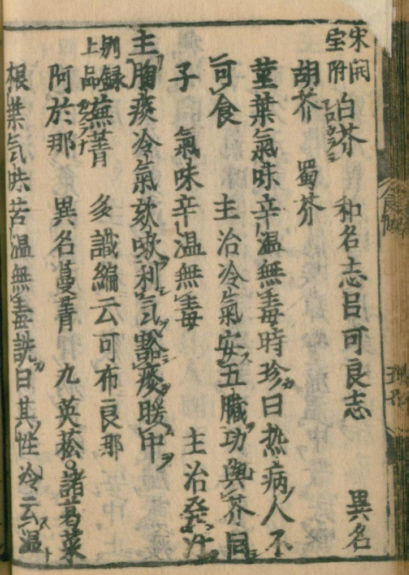 宋開宝附 白芥 和名志呂可良志 異名
胡芥 蜀芥
莖葉氣味辛温無毒時珍曰热病人不
可食 主治冷氣安五臟功與芥同
子 氣味辛温無毒 主治發汗
主胸痰冷氣欬嗽利气豁痰暖中
別録上品 蕪菁 多識編云可布良那
阿於那 異名蔓菁 九英菘 諸葛菜
根葉气味苦温無毒詵曰其性冷云温